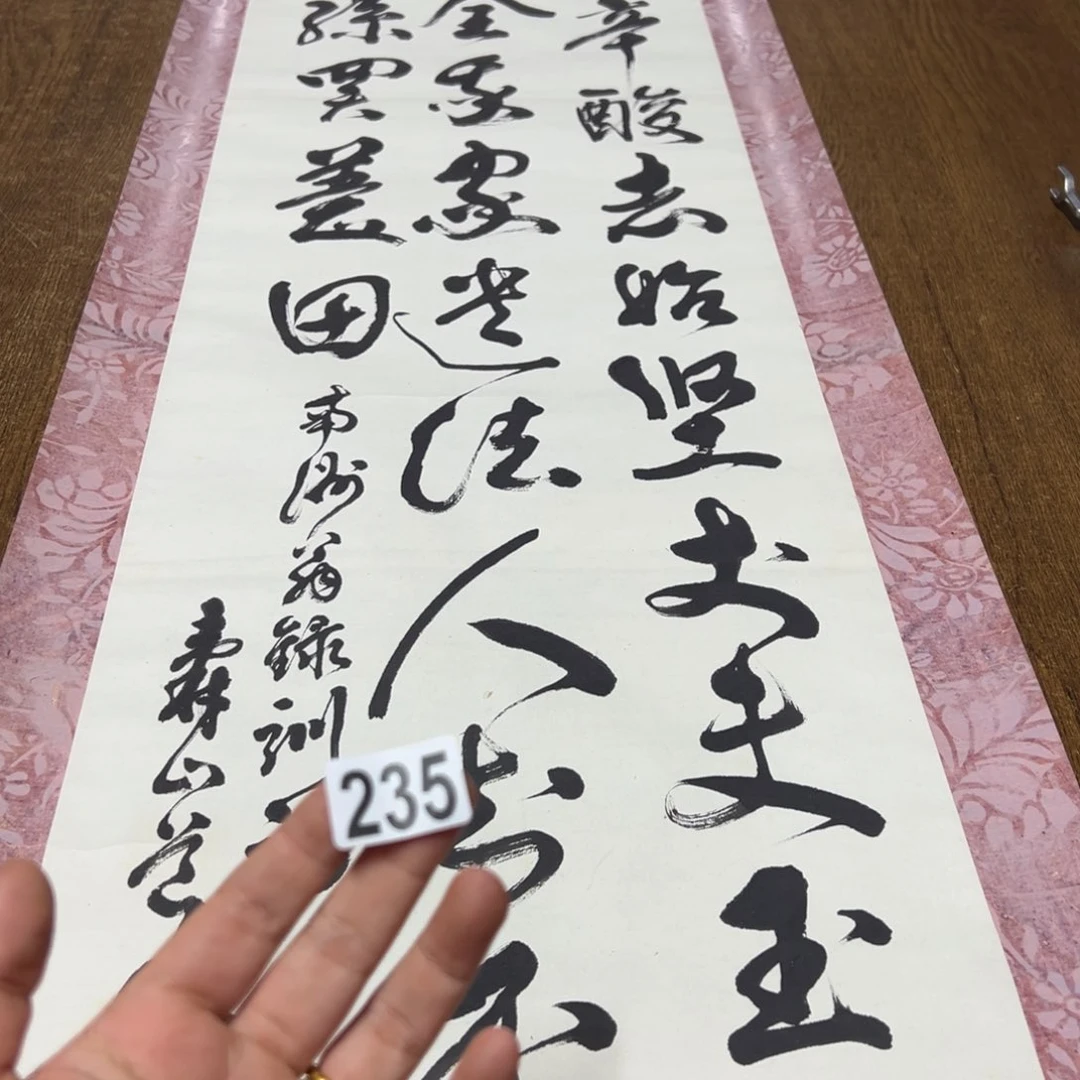 辛酸志始堅丈夫玉
全我家遺法人知
孫買美田
南洲翁録訓
235